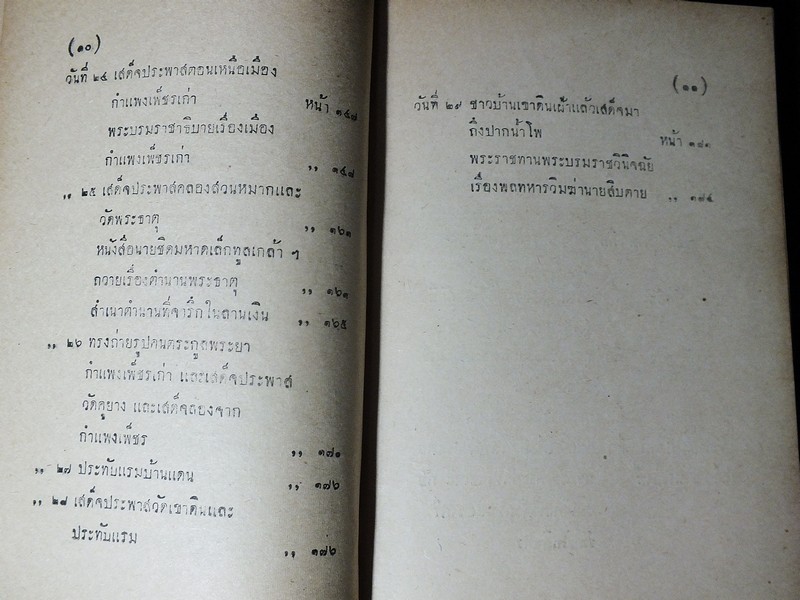 (๑๐)
วันที่ ๒๔ เสด็จประพาสตอนเหนือเมือง
กำแพงเพ็ชรเก่า หน้า ๑๔๘
พระบรมราชาธิบายเรื่องเมือง
กำแพงเพ็ชรเก่า ,, ๑๔๘
,, ๒๕ เสด็จประพาสคลองสวนหมากและ
วัดพระธาตุ ,, ๑๖๑
หนังสือนายชิดมหาดเล็กทูลเกล้า ฯ
ถวายเรื่องตำนานพระธาตุ ,, ๑๖๓
สำเนาตำนานที่จารึกในลานเงิน ,, ๑๖๕
,, ๒๖ ทรงถ่ายรูปคนตระกูลพระยา
กำแพงเพ็ชรเก่า และเสด็จประพาส
วัดคูยาง และเสด็จล่องจาก
กำแพงเพ็ชร ,, ๑๗๑
,, ๒๗ ประทับแรมบ้านแดน ,, ๑๗๖
,, ๒๘ เสด็จประพาสวัดเขาดินและ
ประทับแรม ,, ๑๗๖
(๑๑)
วันที่ ๒๙ ชาวบ้านเขาดินเฝ้าแล้วเสด็จมา
ถึงปากน้ำโพ หน้า ๑๘๑
พระราชทานพระบรมราชวินิจฉัย
เรื่องพลทหารวิมฆ่านายสิบตาย ,, ๑๘๔